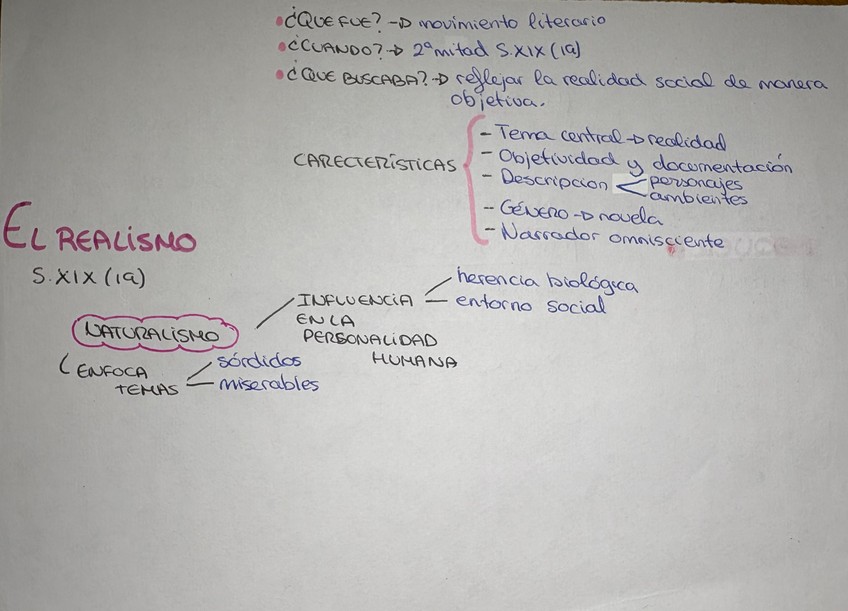 ¿QUE FUE? → movimiento literario
¿CUANDO? → 2ª mitad S.XIX (19)
¿QUE BUSCABA? → reflejar la realidad social de manera
objetiva.
CARECTERÍSTICAS
- Tema central → realidad
- Objetividad y documentación
- Descripcion < personajes
ambientes
- GÉNERO → novela
- Narrador omnisciente
EL REALISMO
S.XIX (19)
NATURALISMO
INFLUENCIA
EN LA
PERSONALIDAD
HUMANA
herencia biológica
entorno social
ENFOCA
TEMAS
sórdidos
miserables